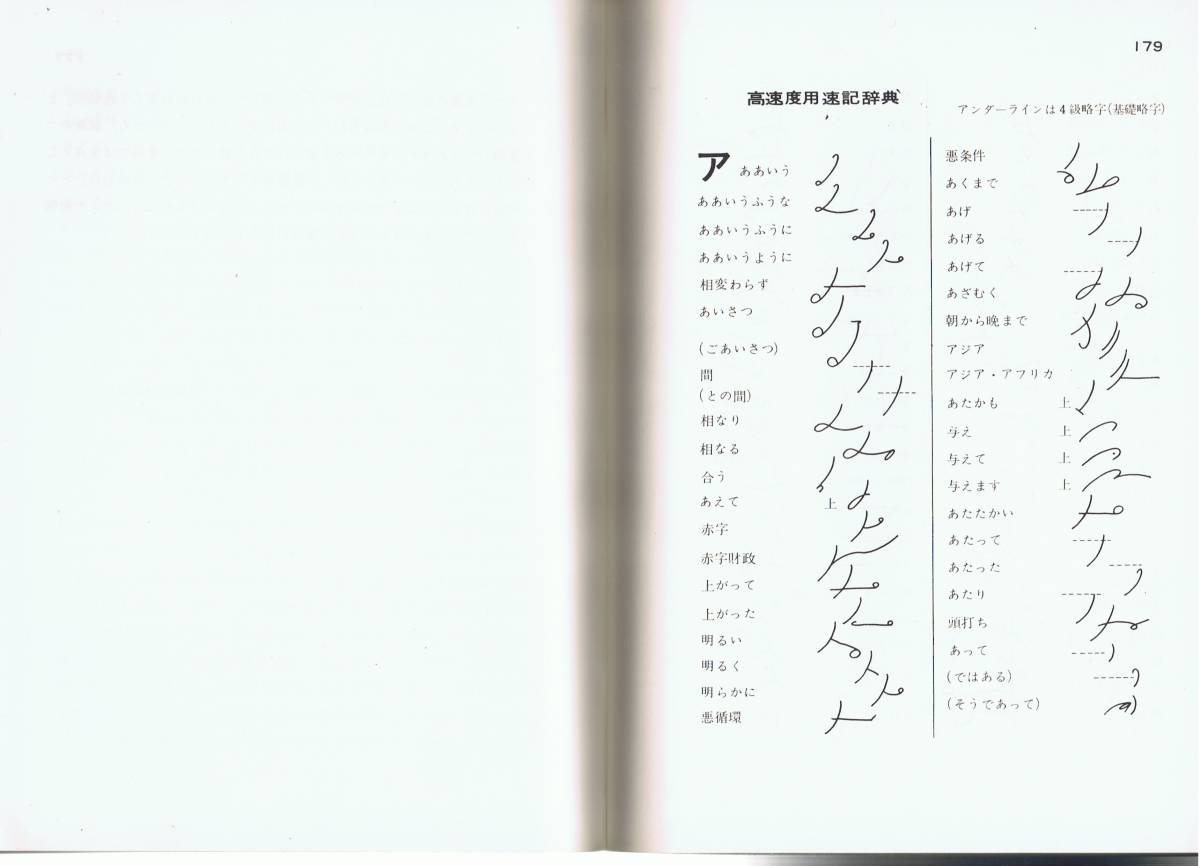 179
高速度用速記辞典
アンダーラインは4級略字(基礎略字)
ア ああいう
ああいうふうな
ああいうふうに
ああいうように
相変わらず
あいさつ
(ごあいさつ)
間
(との間)
相なり
相なる
合う
あえて 上
赤字
赤字財政
上がって
上がった
明るい
明るく
明らかに
悪循環
悪条件
あくまで
あげ
あげる
あげて
あざむく
朝から晩まで
アジア
アジア・アフリカ
あたかも 上
与え 上
与えて 上
与えます 上
あたたかい
あたって
あたった
あたり
頭打ち
あって
(ではある)
(そうであって)